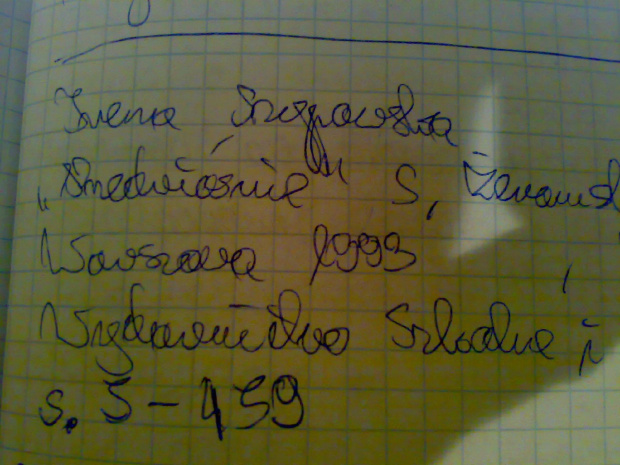 Irena Szypowska
„Przedwiośnie" S. Żeromsk
Warszawa 1993,
Wydawnictwo Szkolne i
s. 5 - 459